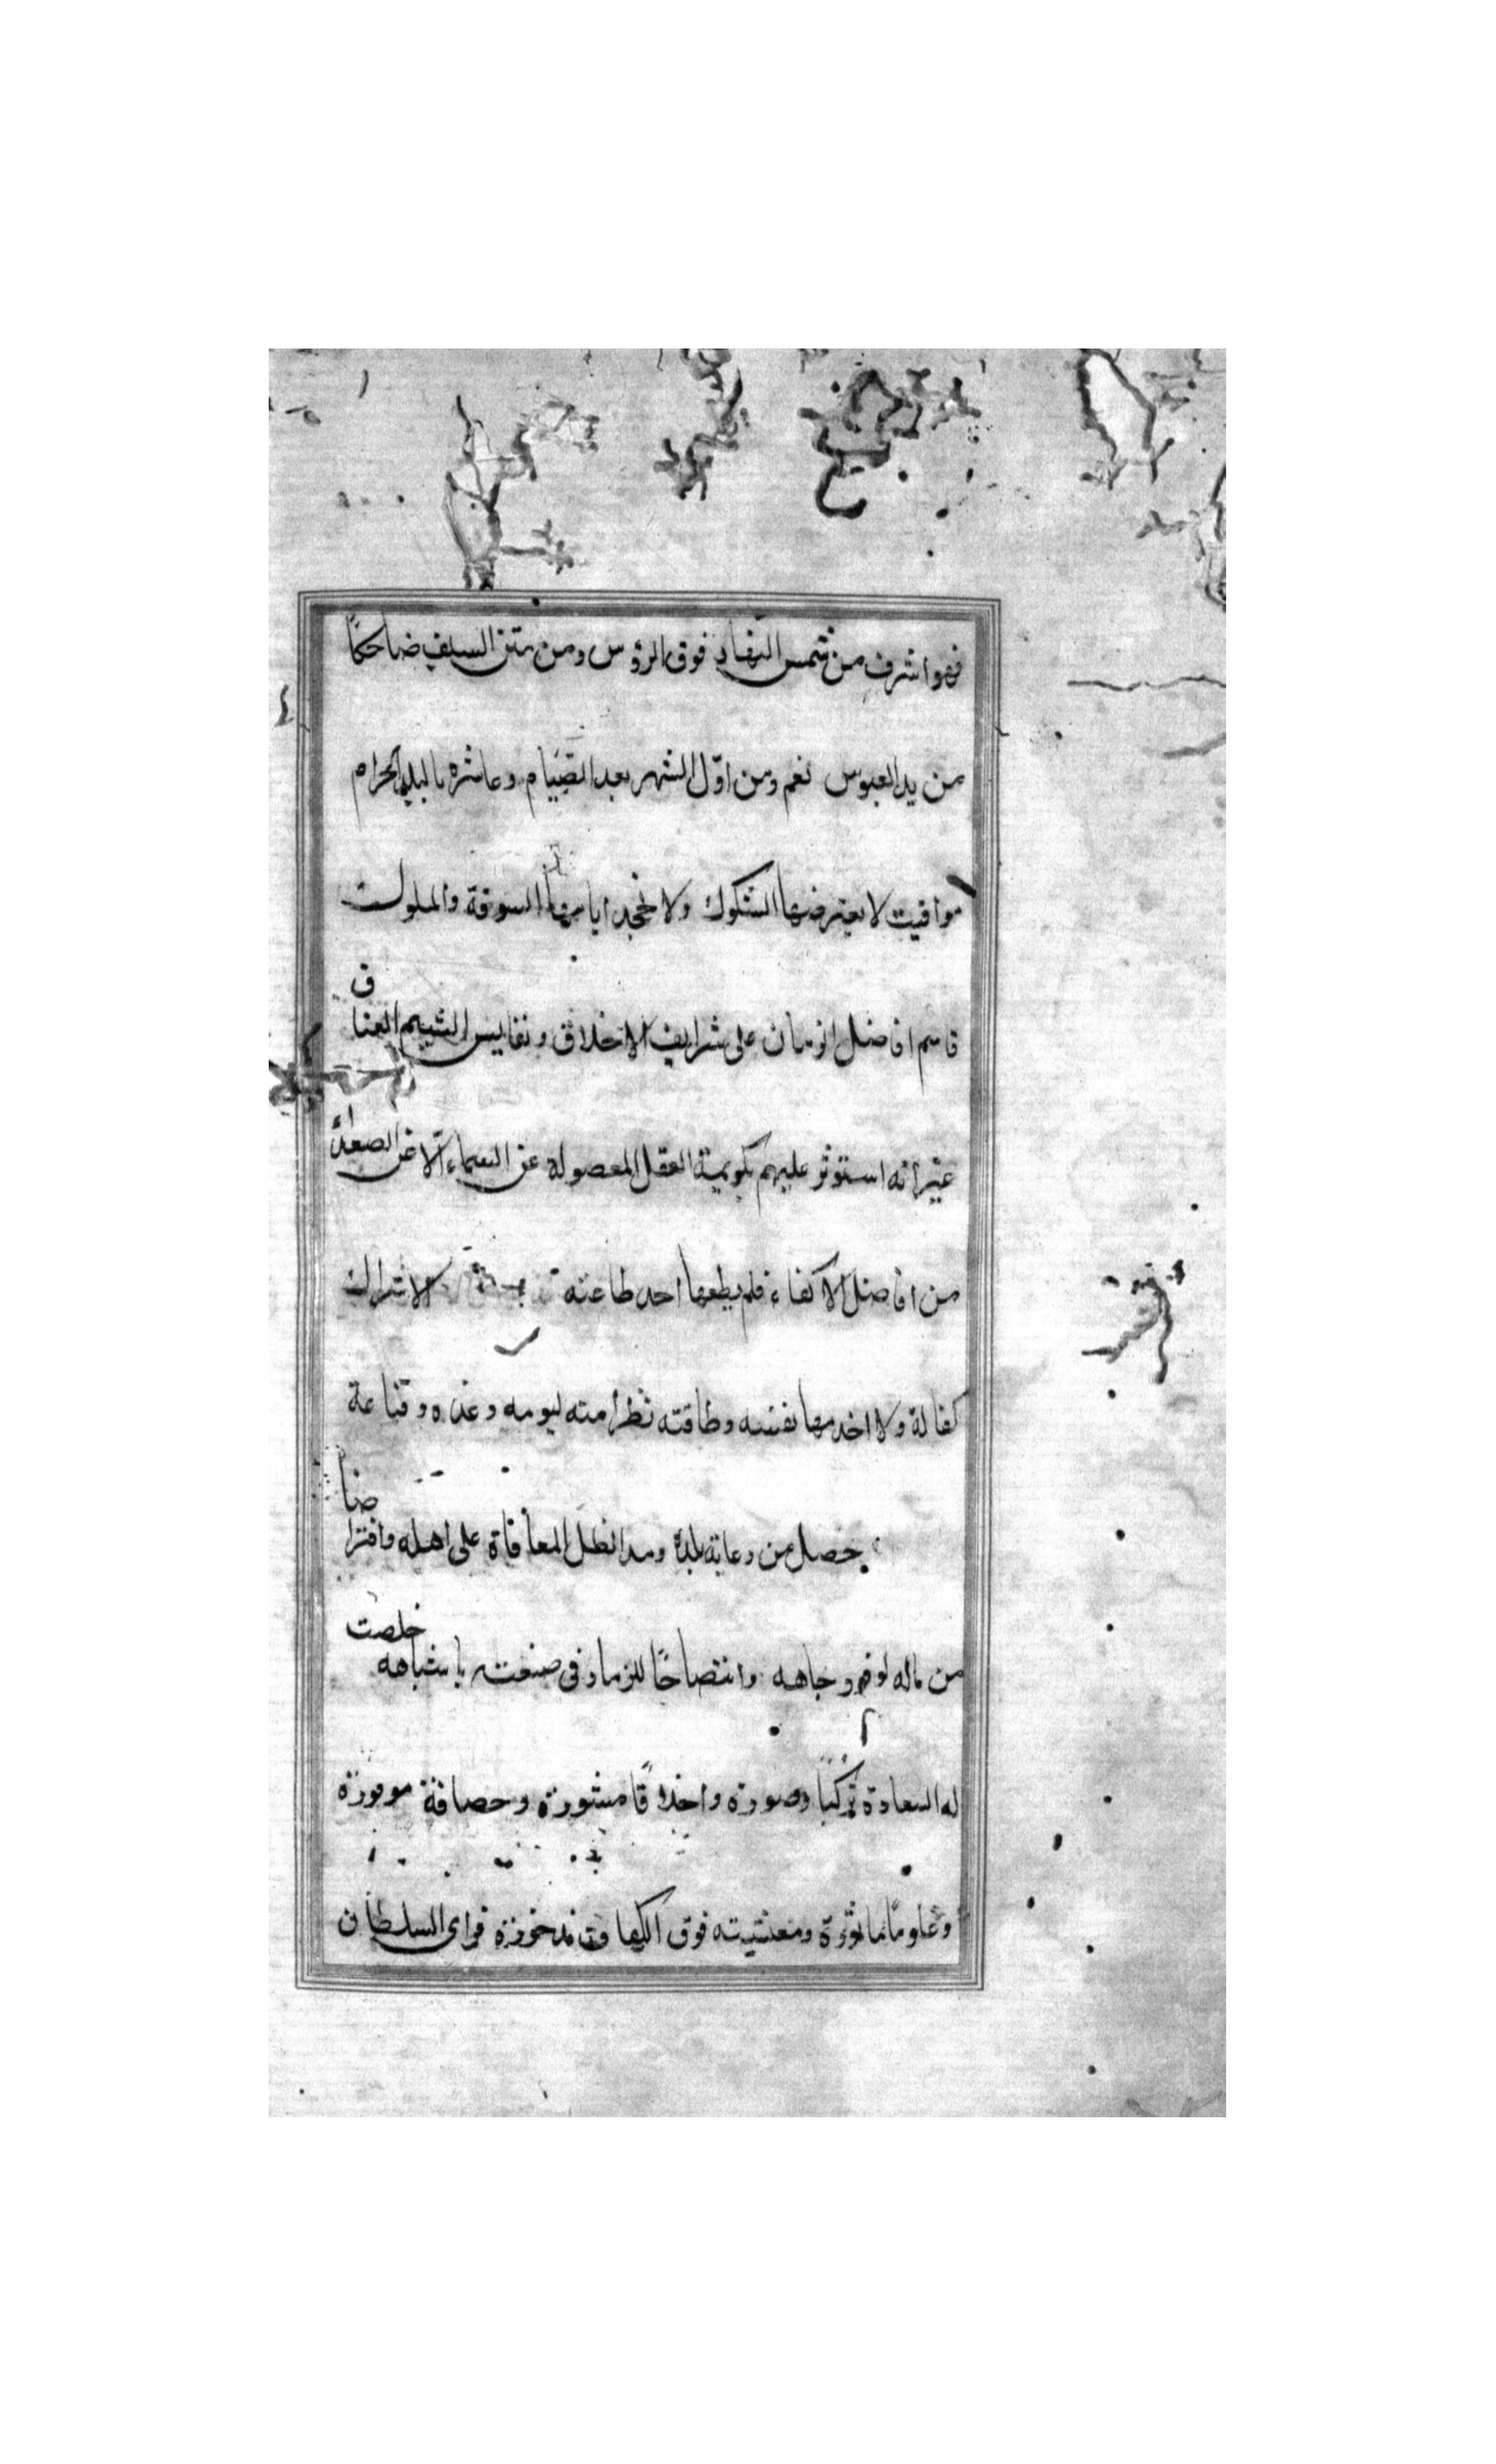 فهو اشرف من شمس النهار فوق الرؤس ومن متن السيف ضاحكًا
من يد العبوس نعم ومن اوّل الشهر بعد الصّيام وعاشره بالبلد الحرام
مواقيت لا يعترضها الشكوك ولا تجحد اياسها السوقة والملوك
قاسم افاضل الزمان على شرايف الاخلاق ونفايس الشيم العتاق
غير انه استوثر عليهم بكريمة العقل المعضولة عن السماء الا عن
من افاضل الاكفاء فلم يطعها احد طاعته الاشراك
كفالة ولا اخدمها نفسه وطاقته نظرا منه ليومه وغده وقناعة
بلده ومد لظل المعافاة على اهله وافتراضا
من ماله لوفر وجاهه وانتصاحًا للزمان فى صنعته باشباهه خلصت
له السعادة تركيبًا وصورة واخلاقًا مبثورة وحصافة موفورة
وعلومًا ماثورة فوق الكفاة فراى السلطان